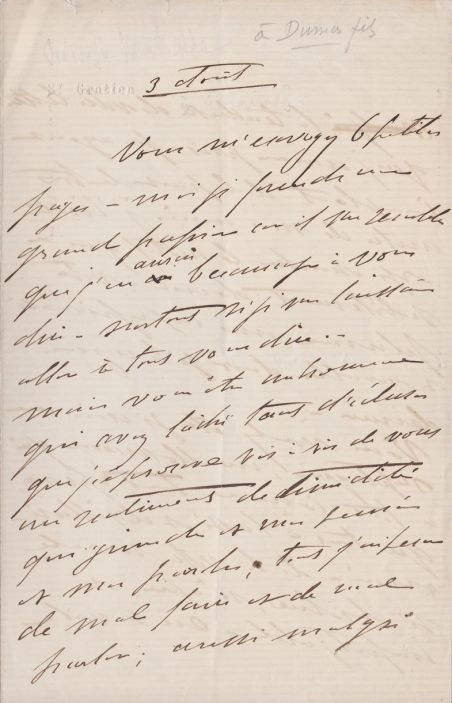 à Dumas fils
St Gratien 3 Août
Vous m'envoyez 6 petites
pages - moi je prends un
grand papier car il me semble
que j'en aurai beaucoup à vous
dire - surtout si je me laissais
aller à tout vous dire..
mais vous êtes un homme
qui avez lâché tant d'écluses
que j'éprouve vis à vis de vous
un sentiment de timidité
qui et mes pensées
et mes paroles; tant j'ai peur
de mal faire et de mal
parler; aussi malgré